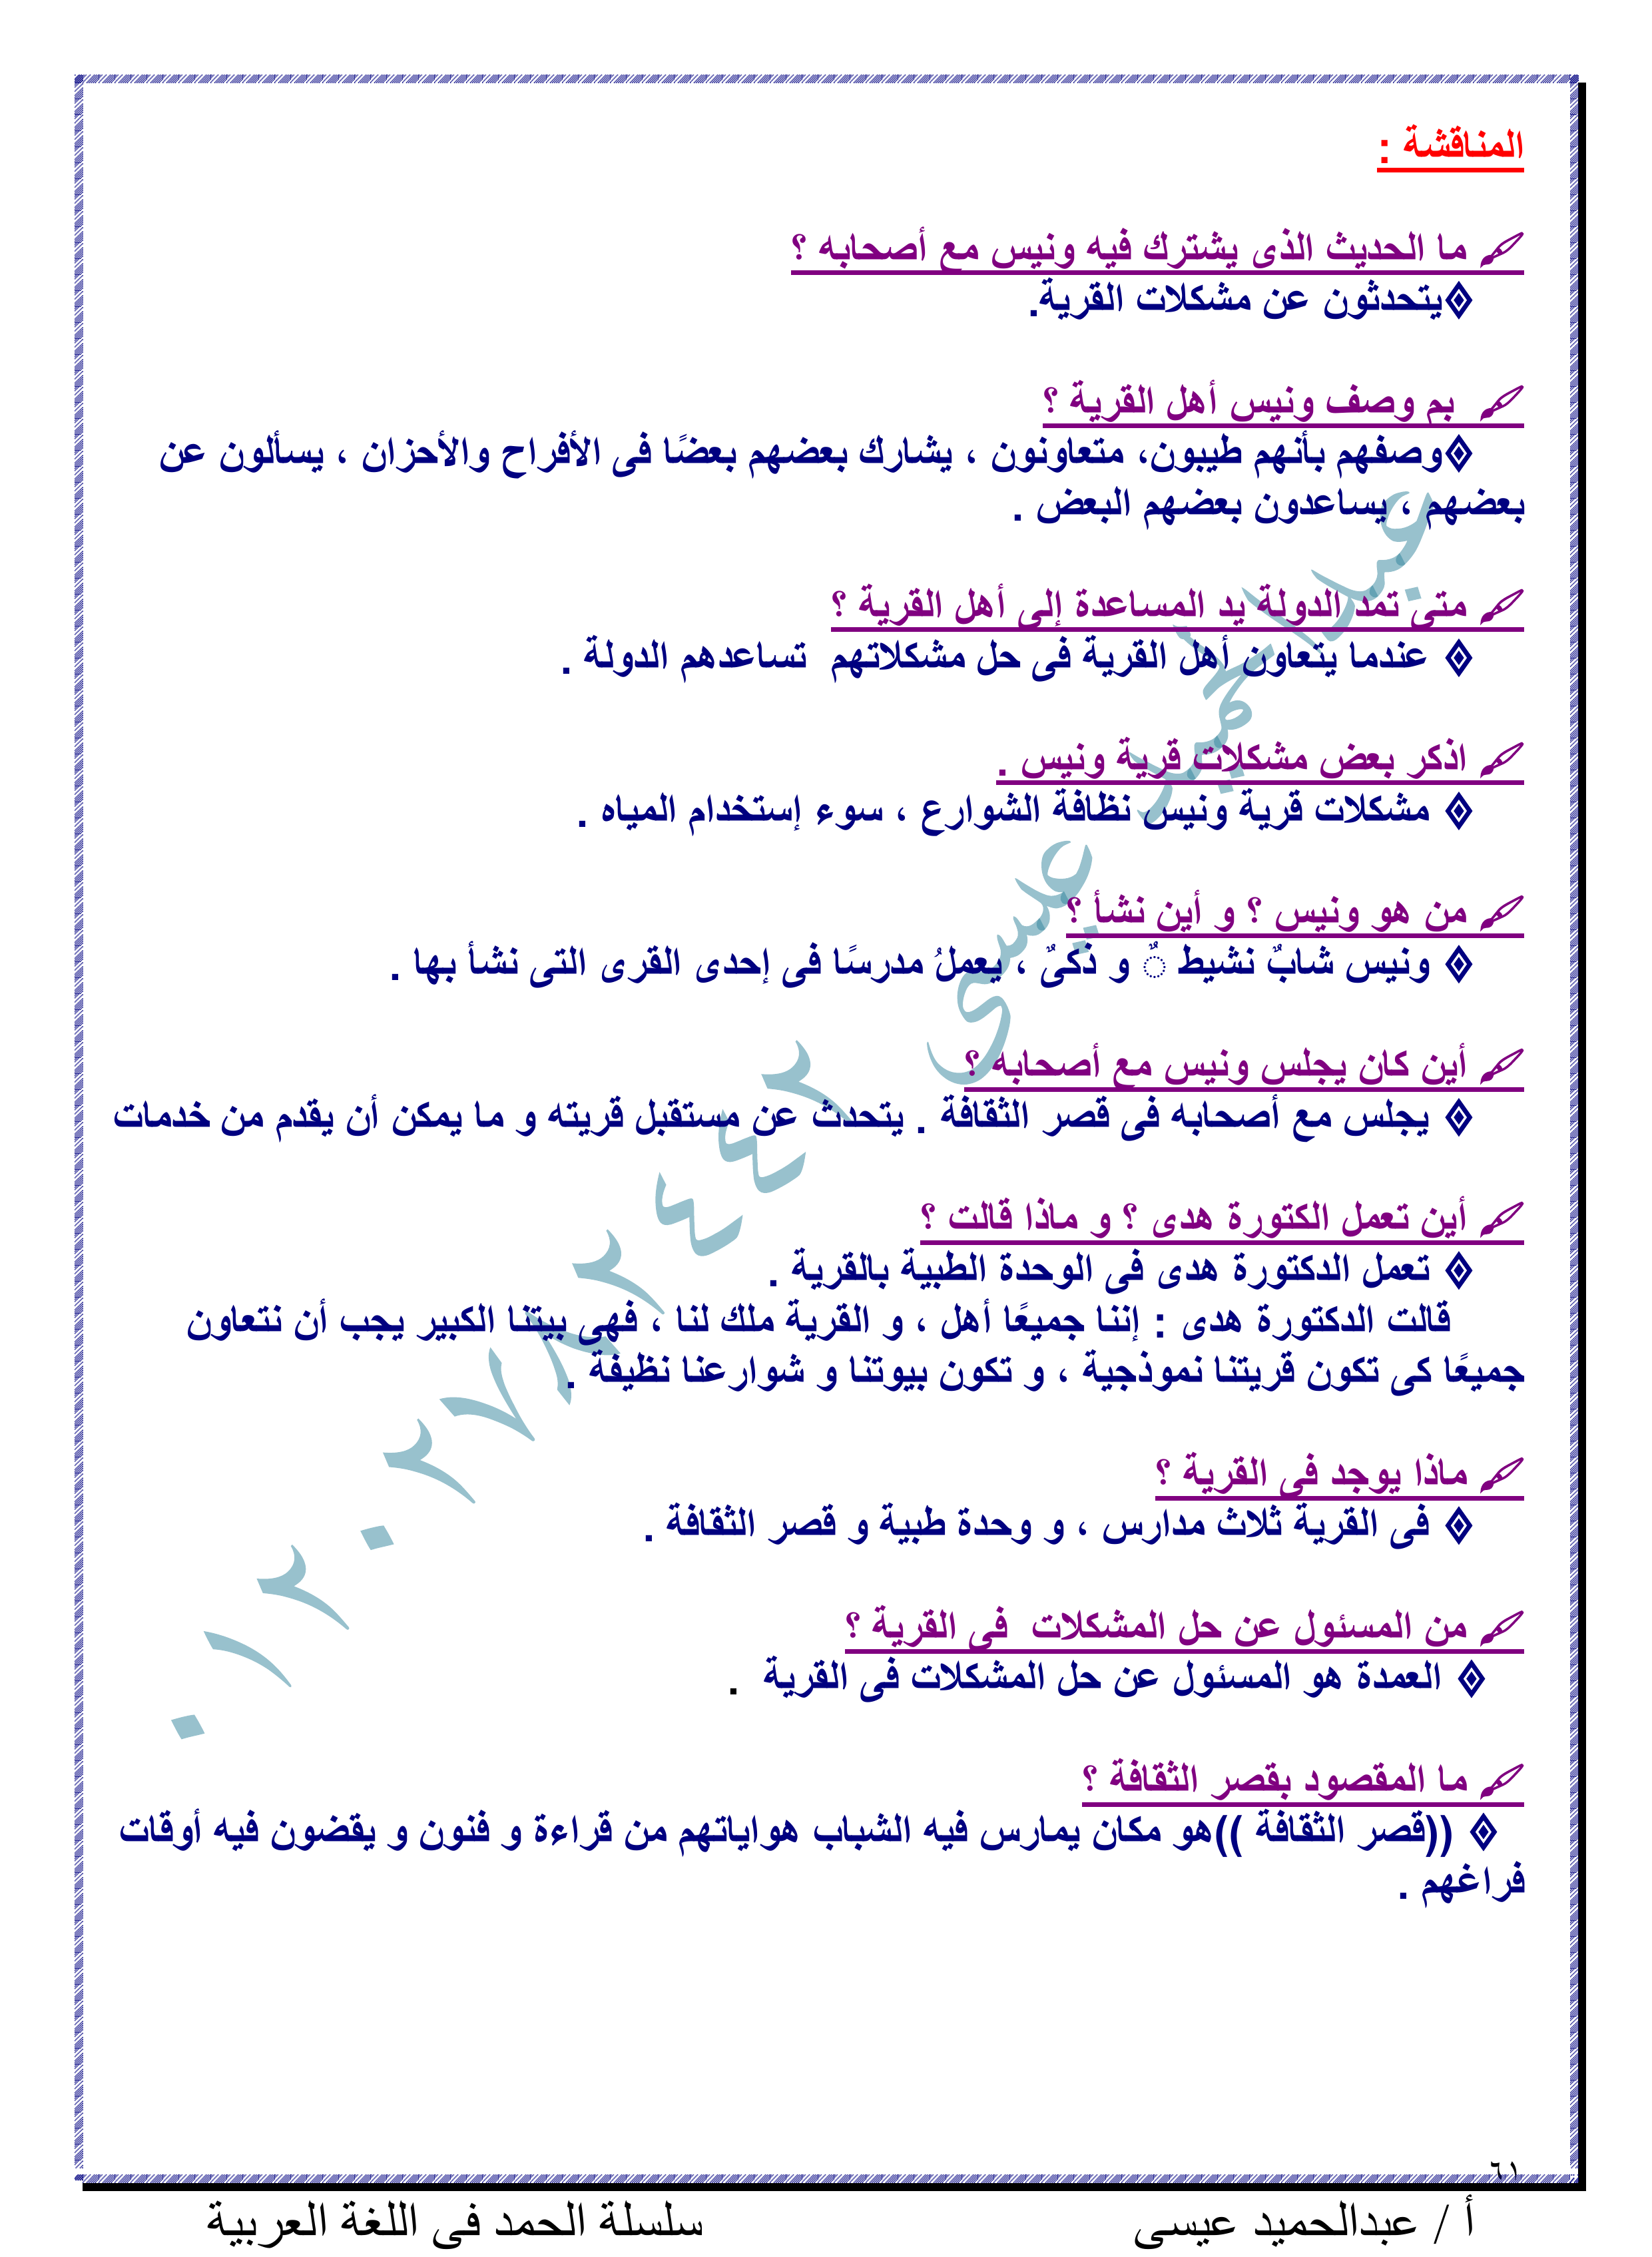 المناقشة :
ما الحديث الذى يشترك فيه ونيس مع أصحابه ؟
يتحدثون عن مشكلات القرية.
بم وصف ونيس أهل القرية ؟
وصفهم بأنهم طيبون، متعاونون ، يشارك بعضهم بعضًا فى الأفراح والأحزان ، يسألون عن
بعضهم ، يساعدون بعضهم البعض .
متى تمد الدولة يد المساعدة إلى أهل القرية ؟
عندما يتعاون أهل القرية فى حل مشكلاتهم تساعدهم الدولة .
اذكر بعض مشكلات قرية ونيس .
مشكلات قرية ونيس نظافة الشوارع ، سوء إستخدام المياه .
من هو ونيس ؟ و أين نشأ ؟
ونيس شابٌ نشيط ٌ و ذكىٌ ، يعملُ مدرسًا فى إحدى القرى التى نشأ بها .
أين كان يجلس ونيس مع أصحابه ؟
يجلس مع أصحابه فى قصر الثقافة . يتحدث عن مستقبل قريته و ما يمكن أن يقدم من خدمات
أين تعمل الكتورة هدى ؟ و ماذا قالت ؟
تعمل الدكتورة هدى فى الوحدة الطبية بالقرية .
قالت الدكتورة هدى : إننا جميعًا أهل ، و القرية ملك لنا ، فهى بيتنا الكبير يجب أن نتعاون
جميعًا كى تكون قريتنا نموذجية ، و تكون بيوتنا و شوارعنا نظيفة .
ماذا يوجد فى القرية ؟
فى القرية ثلاث مدارس ، و وحدة طبية و قصر الثقافة .
من المسئول عن حل المشكلات فى القرية ؟
العمدة هو المسئول عن حل المشكلات فى القرية .
ما المقصود بقصر الثقافة ؟
((قصر الثقافة ))هو مكان يمارس فيه الشباب هواياتهم من قراءة و فنون و يقضون فيه أوقات
فراغهم .
عبدالحميد عيسى ٠١٢٠٢٧٨٢٤٤٢
٦١
أ / عبدالحميد عيسى سلسلة الحمد فى اللغة العربية